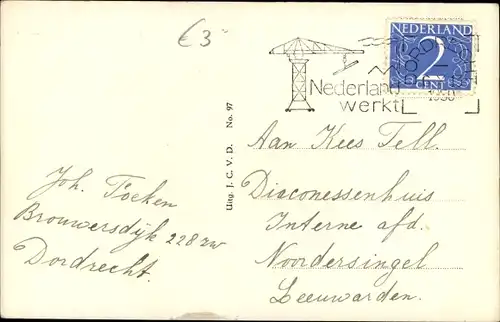 €3
NEDERLAND
2
CENT
Nederland
werkt
Uitg. J. C. V. D. No. 97
Aan Kees Tell.
Diaconessenhuis
Interne afd.
Noordersingel
Leeuwarden.
Joh. Foeken
Brouwersdijk 228 zw
Dordrecht.